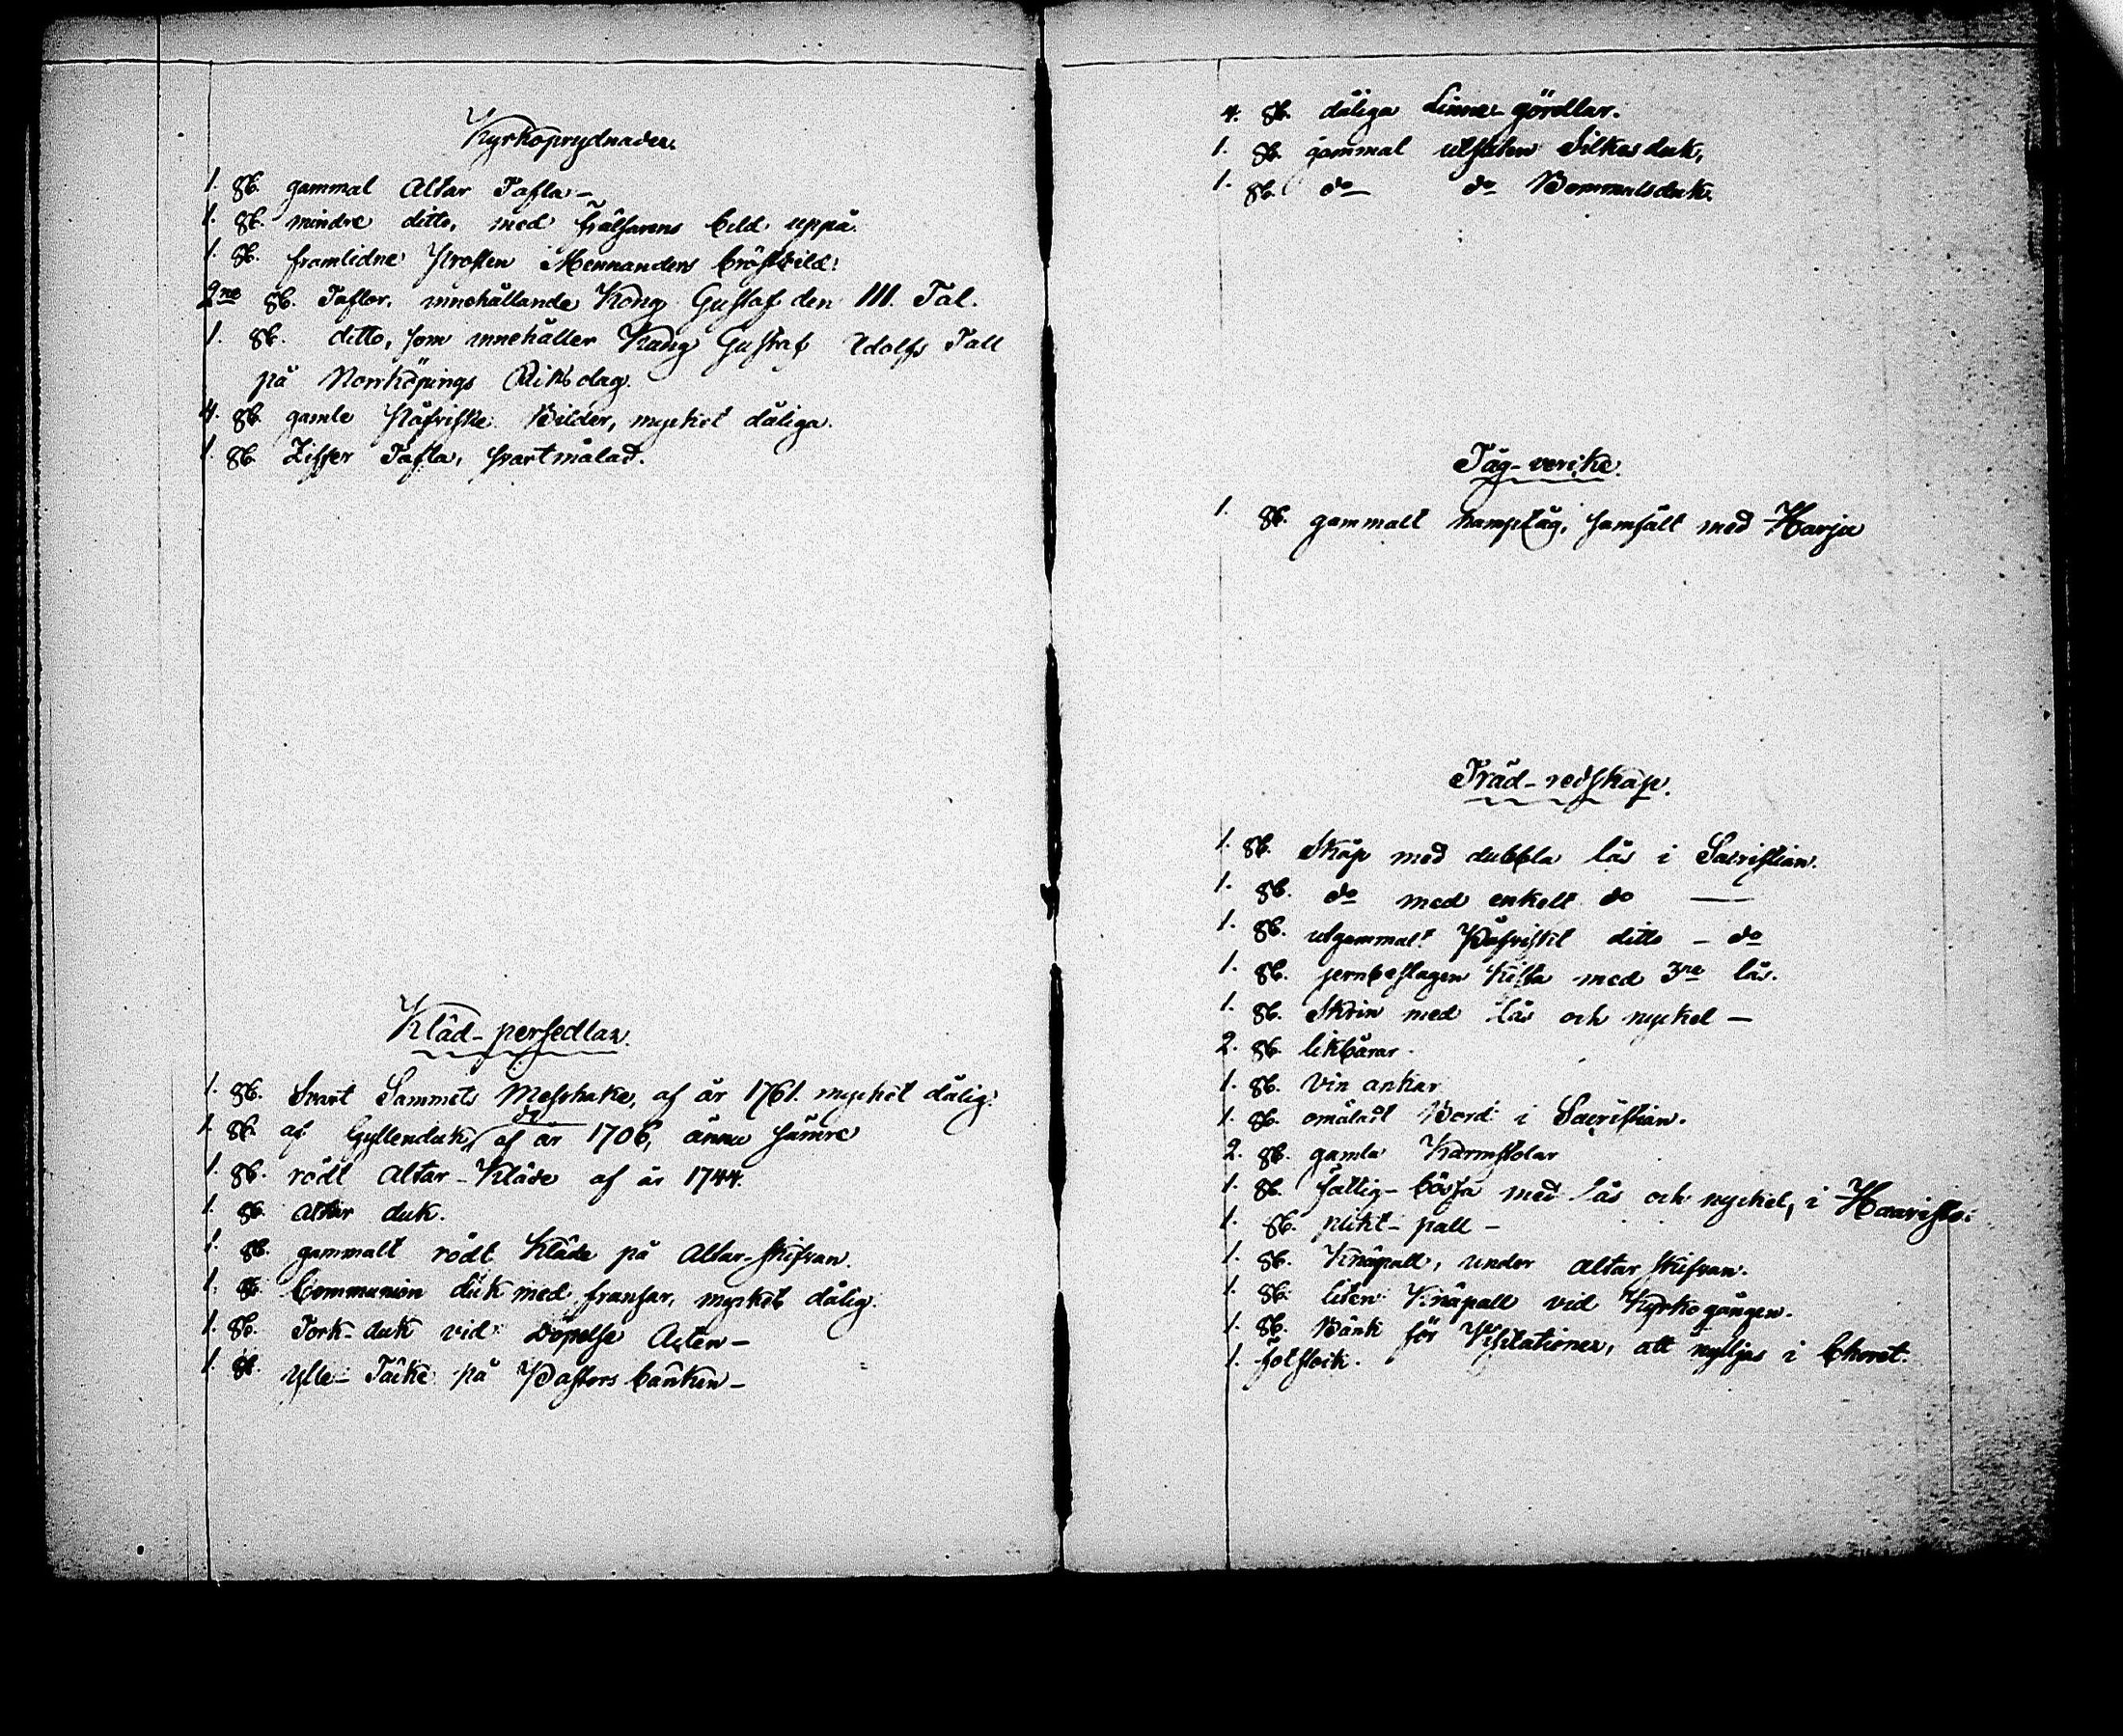 Kyrkoprydnader.
1. St. gammal Altar Tafla –
1. St. mindre ditto, med frälsarens bild uppå.
1. St. framlidne Prosten Mennanders bröstbild.
2ne St. Taflor, innehållande Kong Gustaf den III. Tal.
1. St. ditto, som innehåller Kung Gustaf Adolfs Tall
på Norrköpings Riksdag.
4. St. gamle påfviske Bilder, mycket dåliga.
1. St. Ziffer Tafla, svartmålad.
Kläd-persedlar.
1. St. Svart Sammets Messhake, af år 1761. mycket dålig.
1. St. af Gyllenduk, do af år 1706, ännu sämre
1. St. rödt Altar-Kläde af år 1744.
1. St. Altar duk.
1. St. gammalt rödt Kläde på Altar-skifvan.
1. St. Communion duk med fransar, mycket dålig.
1. St. Tork-duk vid Döpelse Acten –
1. St. Ylle-Täcke på Pastors bänken –
4. St. dåliga Linne-gördlar.
1. St. gammal utsliten Silkesduk,
1. St. do do Bommulsduk.
Tåg-verke.
1. St. gammalt hamptåg, samfält med Harju
Träd-redskap.
1. St. Skåp med dubbla lås i Sacristian.
1. St. do med enkelt do —
1. St. utgammalt Påfviskt ditto – do
1. St. jernbeslagen Kista med 3ne lås.
1. St. Skrin med lås och nyckel –
2. St. likbårar.
1. St. Vin ankar
1. St. omåladt Bord i Sacristian.
2. St. gamla Karmstolar
1. St. fattig-bössa med lås och nyckel, i
1. St. plikt-pall –
1. St. Knäpall, under Altar skifvan.
1. St. liten Knäpall vid Kyrkogången.
1. St. Bänk för Visitationer, att nyttjas i Choret.
1. fotstock.